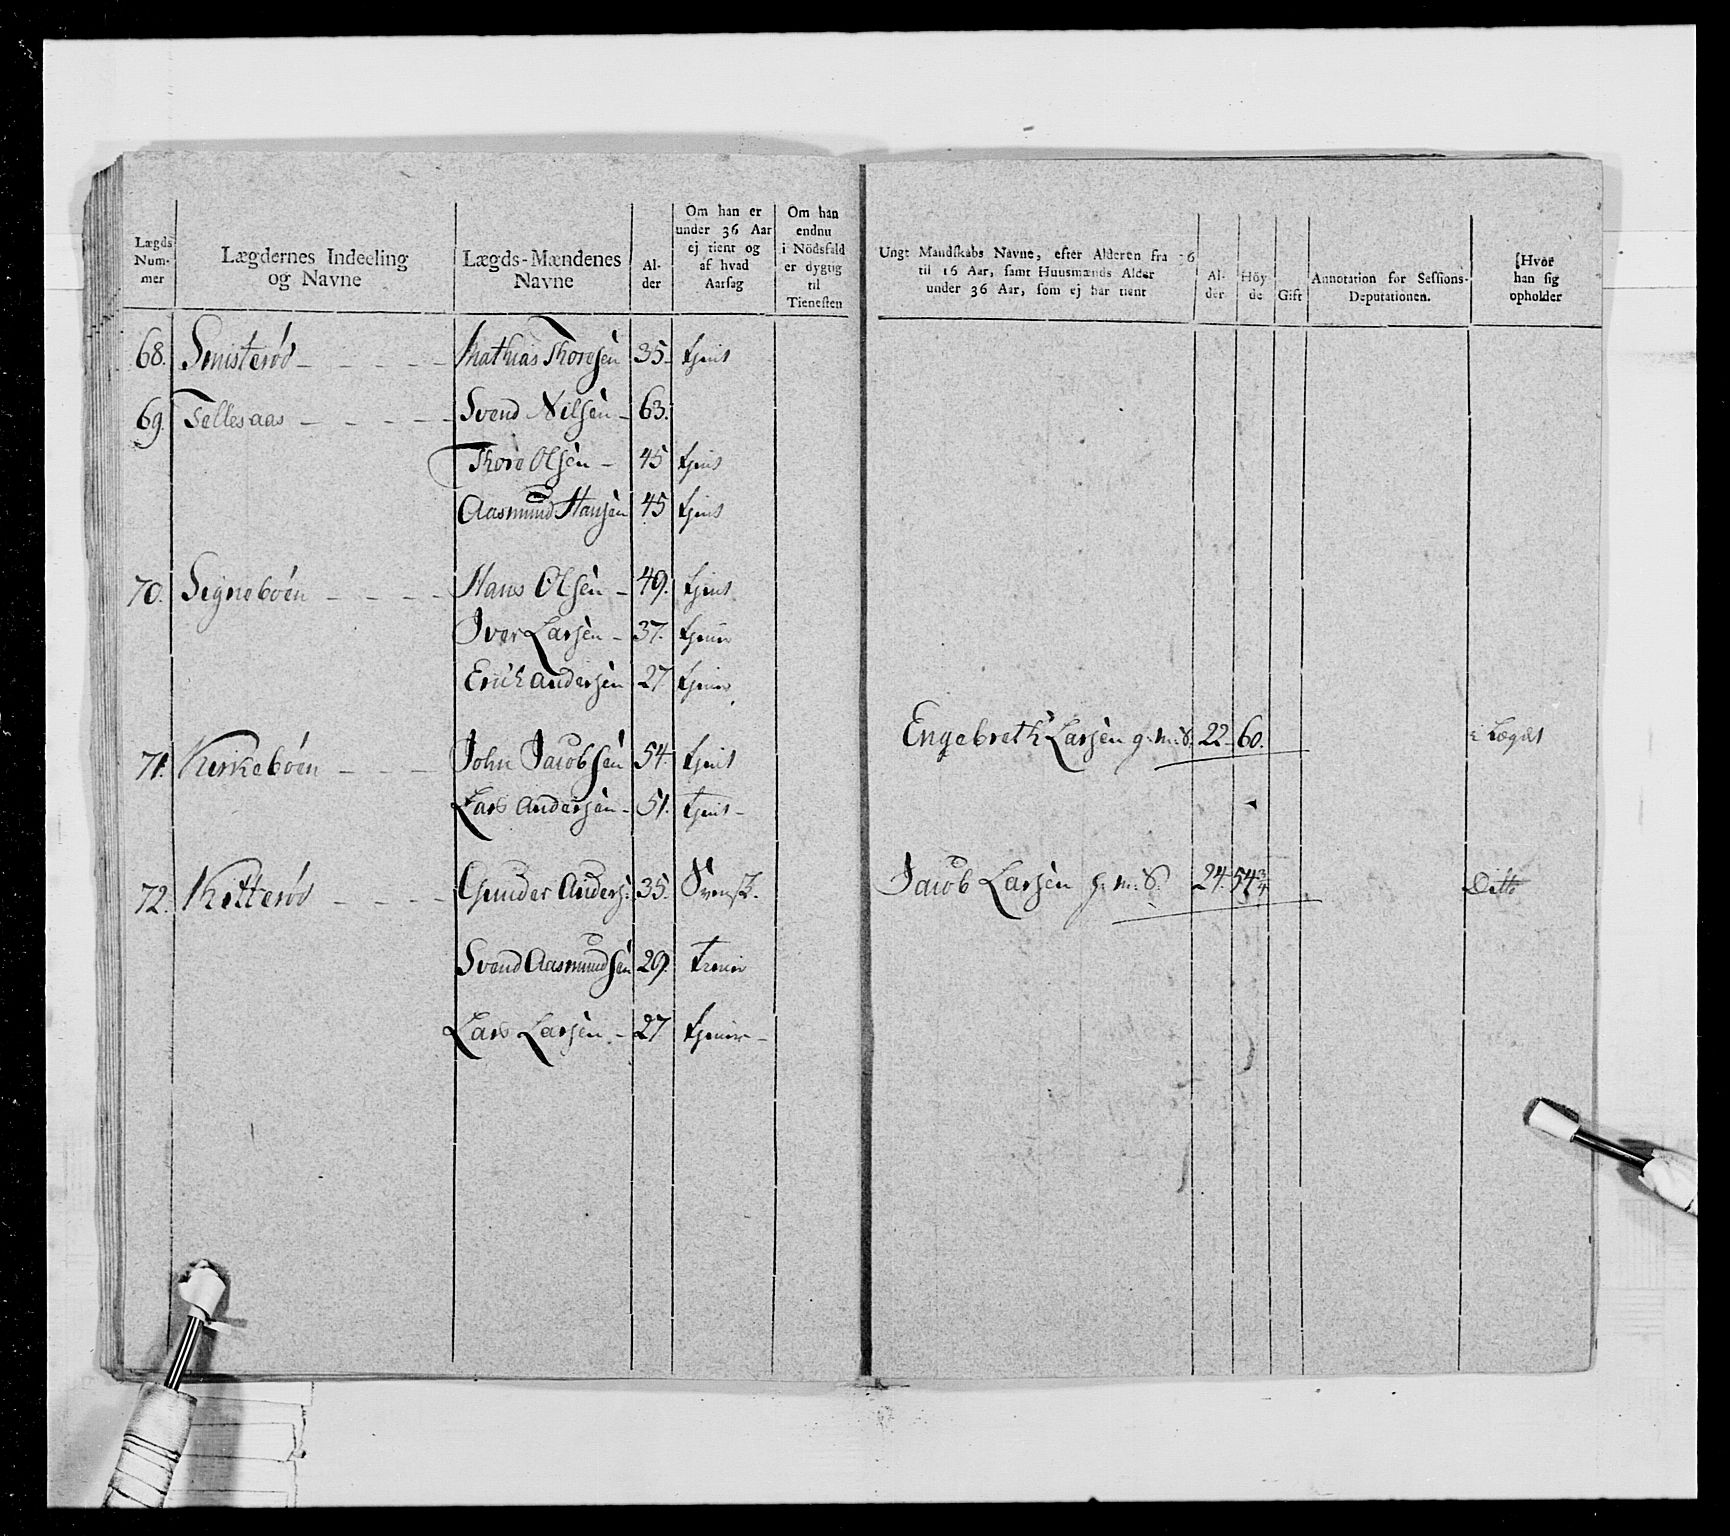 Lægds Num- mer
Lægdernes Indeeling og Navne
Lægds-Mændenes Navne
Al- der
Om han er under 36 Aar ej tient og af hvad Aarsag
Om han endnu i Nödsfald er dygtig til Tienesten
Ungt Mandskabs Navne, efter Alderen fra 36 til 16 Aar, samt Huusmænds Alder under 36 Aar, som ej har tient
Al- der
Höy- de
Gift
Annotation for Sessions- Deputationen.
Hvor han sig opholder
68. Smisterød - - - - Mathias Thoresen 35 - tjent
69. Tellesaas - - - - Svend Nilsen - 63.
Thore Olsen - 45 tjent
Aasmund Hansen 45 tjent
70. Signebøen - - - - Hans Olsen - 49. tjent
Iver Larsen - 37. tjener
Erich Andersen 27 tjener
Engebreth Larsen g. m: S. 22 - 60. i Lægdet
71. Kirkebøen - - - John Jacobsen 54. tjent
Lars Andersen - 51. tjent -
72. Kitterød - - - - Gunder Anders: 35. Svensk. Jacob Larsen g. m: S. 24. 54 3/4 Ditto
Svend Aasmundsen 29.
Lars Larsen. - 27 tjener -